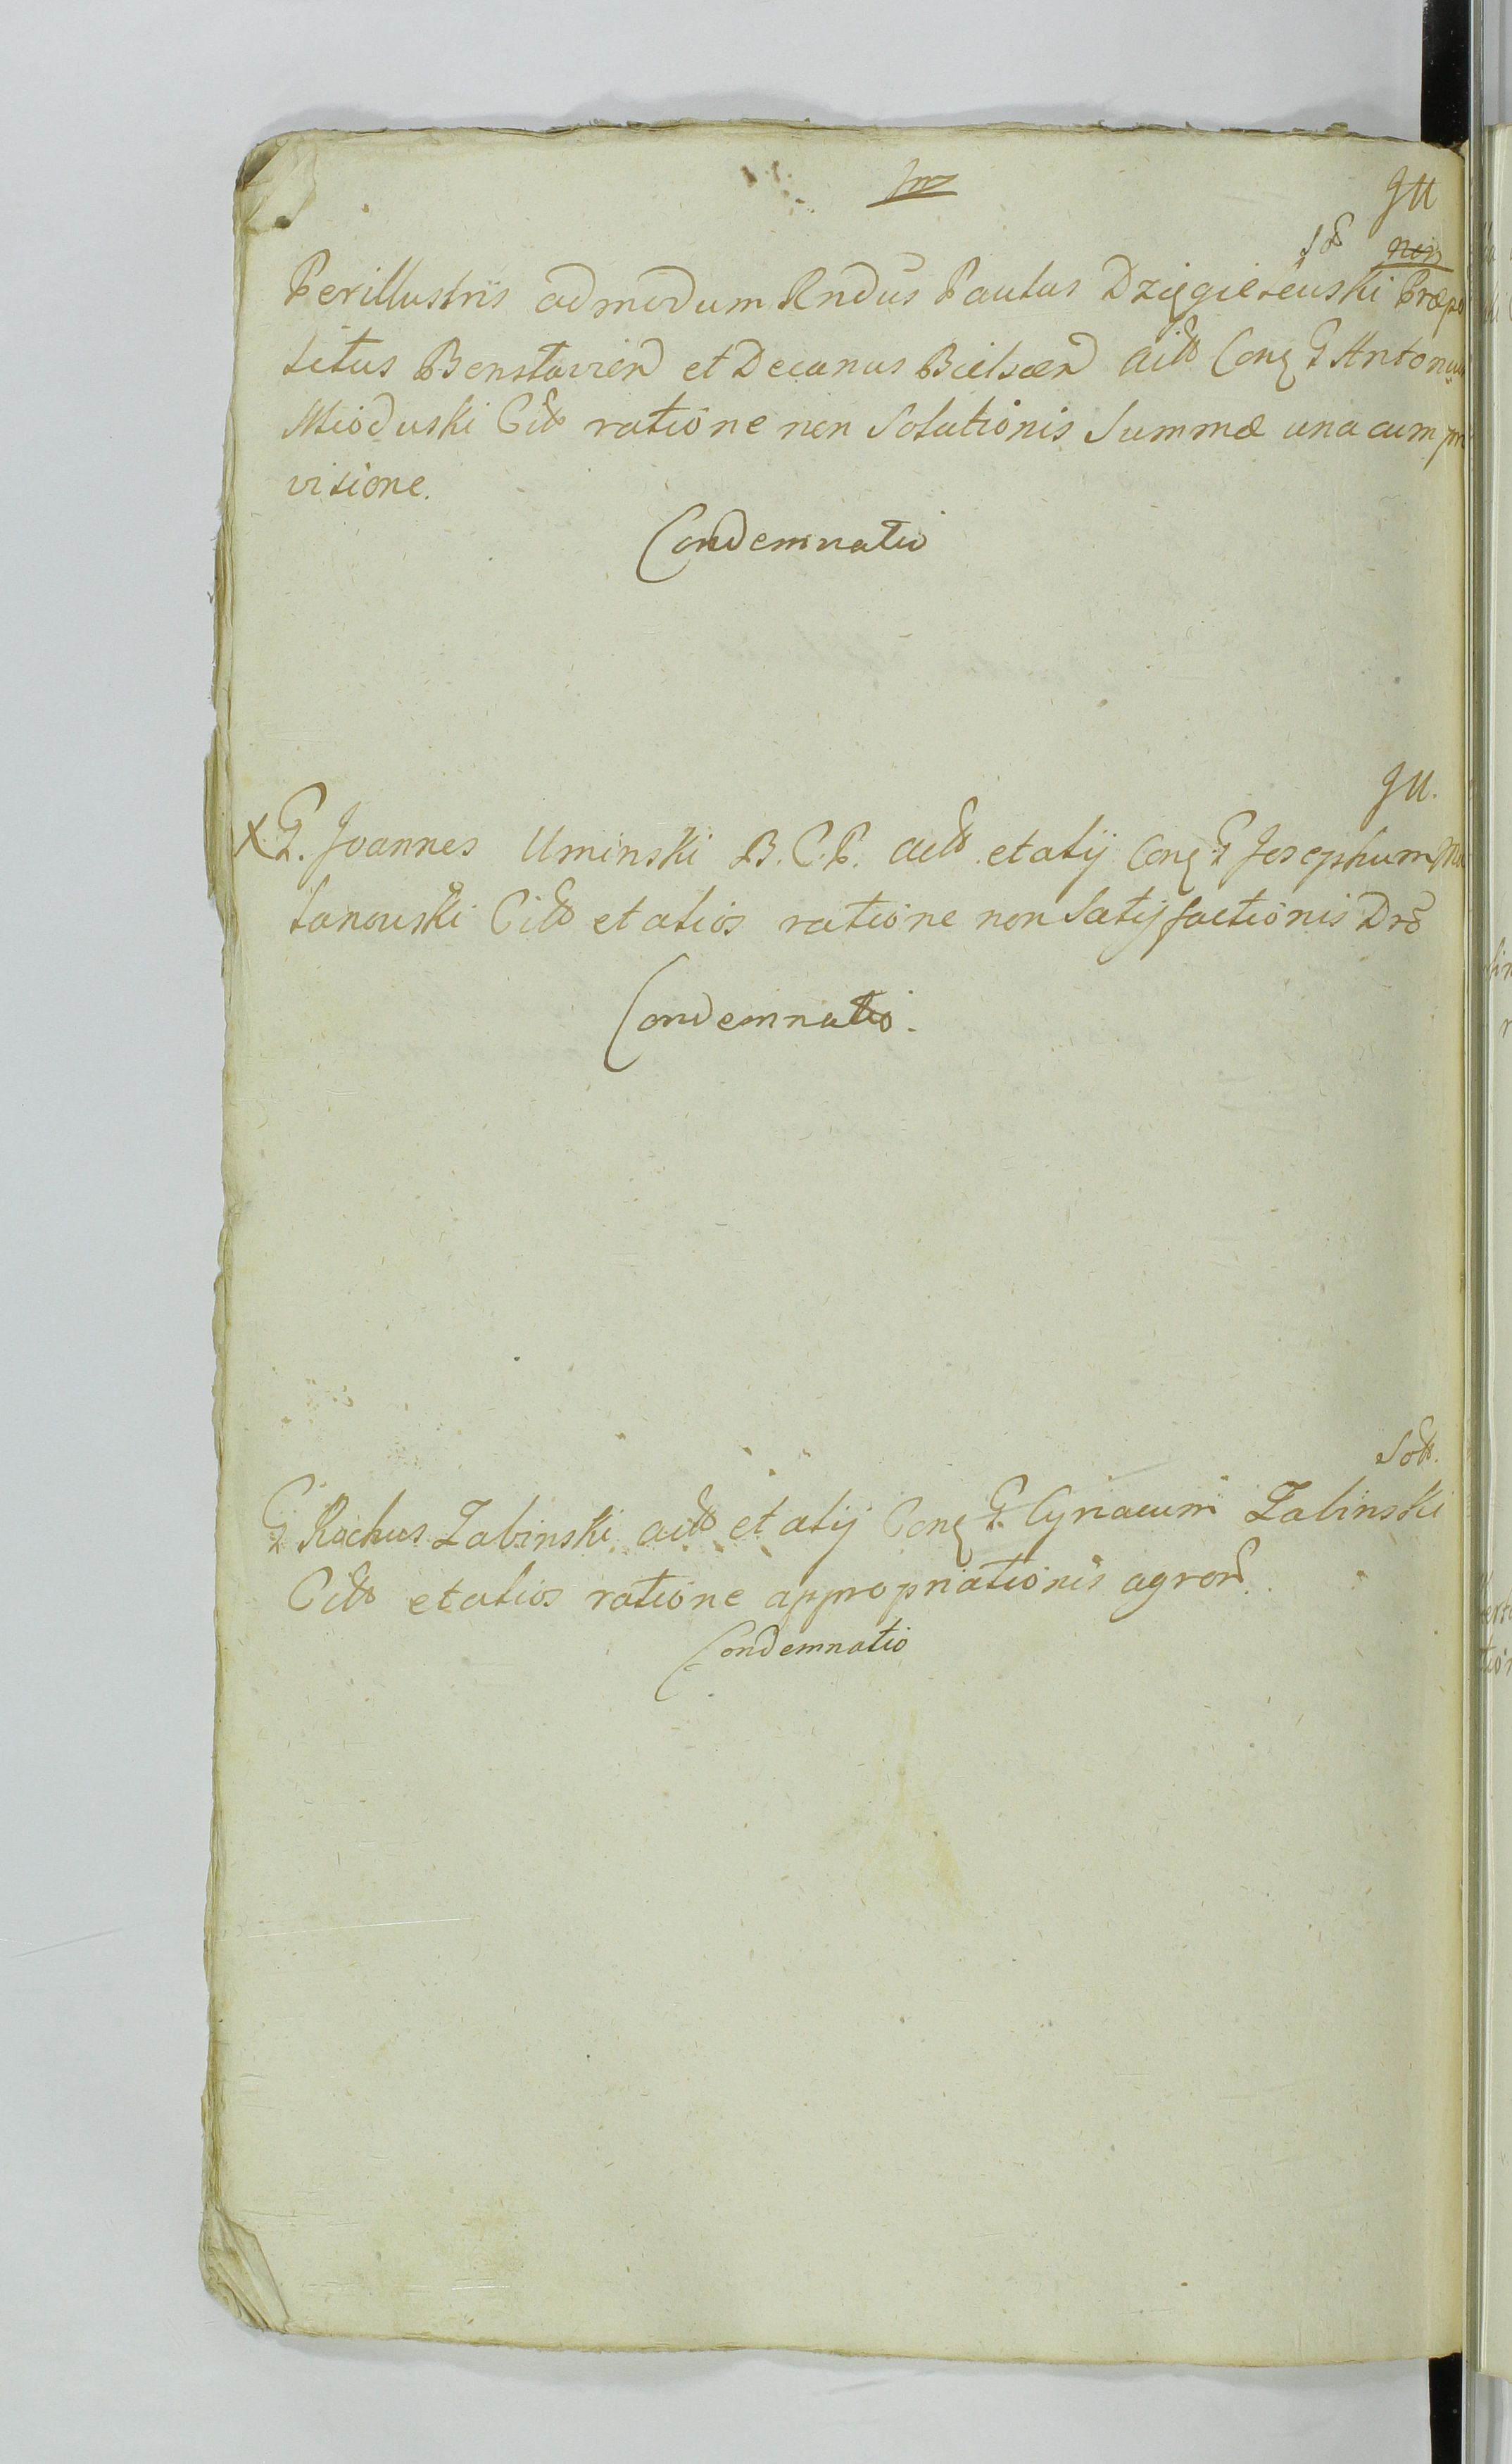 Perillustris admodum Rndus Paulus Dzięgielewski Præpo
situs Benstavien et Decanus Bielscen act Conq G Antonium
Mioduski Cit ratione non Solutionis Summæ una cum pro
visione.
Condemnatio
X G. Joannes Uminski B. C. P. act et alij Conq G Josephum
lanowski Cit et alios ratione non Satisfactionis Dro
Condemnatio.
G Rochus Zabinski act et alij Conq G. Cyriacum Zabinski
Cit et alios ratione appropriationis agror.
Condemnatio